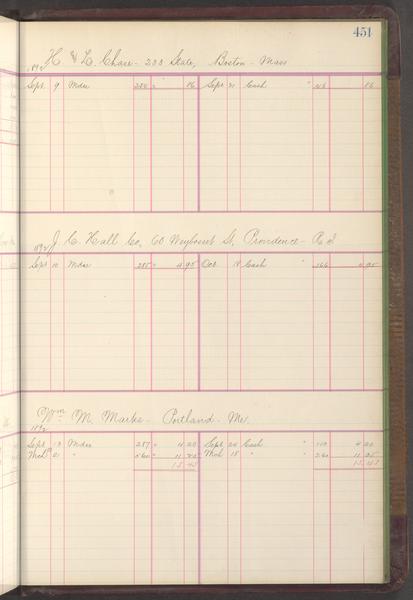 451
1892 H & L. Chase - 233 State, Boston - Mass
Sept 9 Mdse 286 " 86 Sept 21 Cash " 86
1892 J. C. Hall Co, 60 Weybosset St, Providence - R I
Sept 10 Mdse 285 " 4 95 Oct 18 Cash " 166 4 95
Wm M. Marks - Portland - Me.
1892
Sept 13 Mdse 287 " 4 20 Sept 24 Cash " 4 20
Mch 21 " 560 " 11 25 Mch 18 " " 260 11 25
15 45 15 45